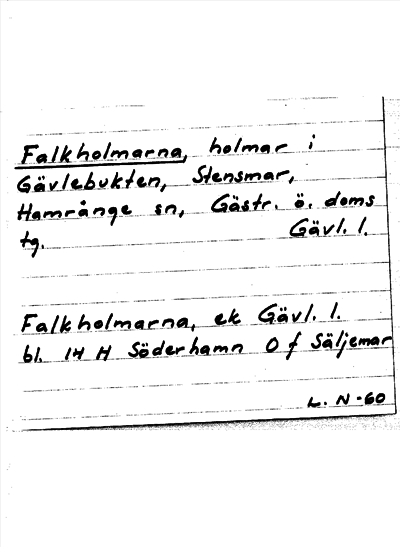 Falkholmarna, holmar i
Gävlebukten, Stensmar,
Hamrånge sn, Gästr. ö. doms
tg. Gävl. l.
Falkholmarna, ek Gävl. l.
bl. 14 H Söderhamn O f Säljemar
L. N-60